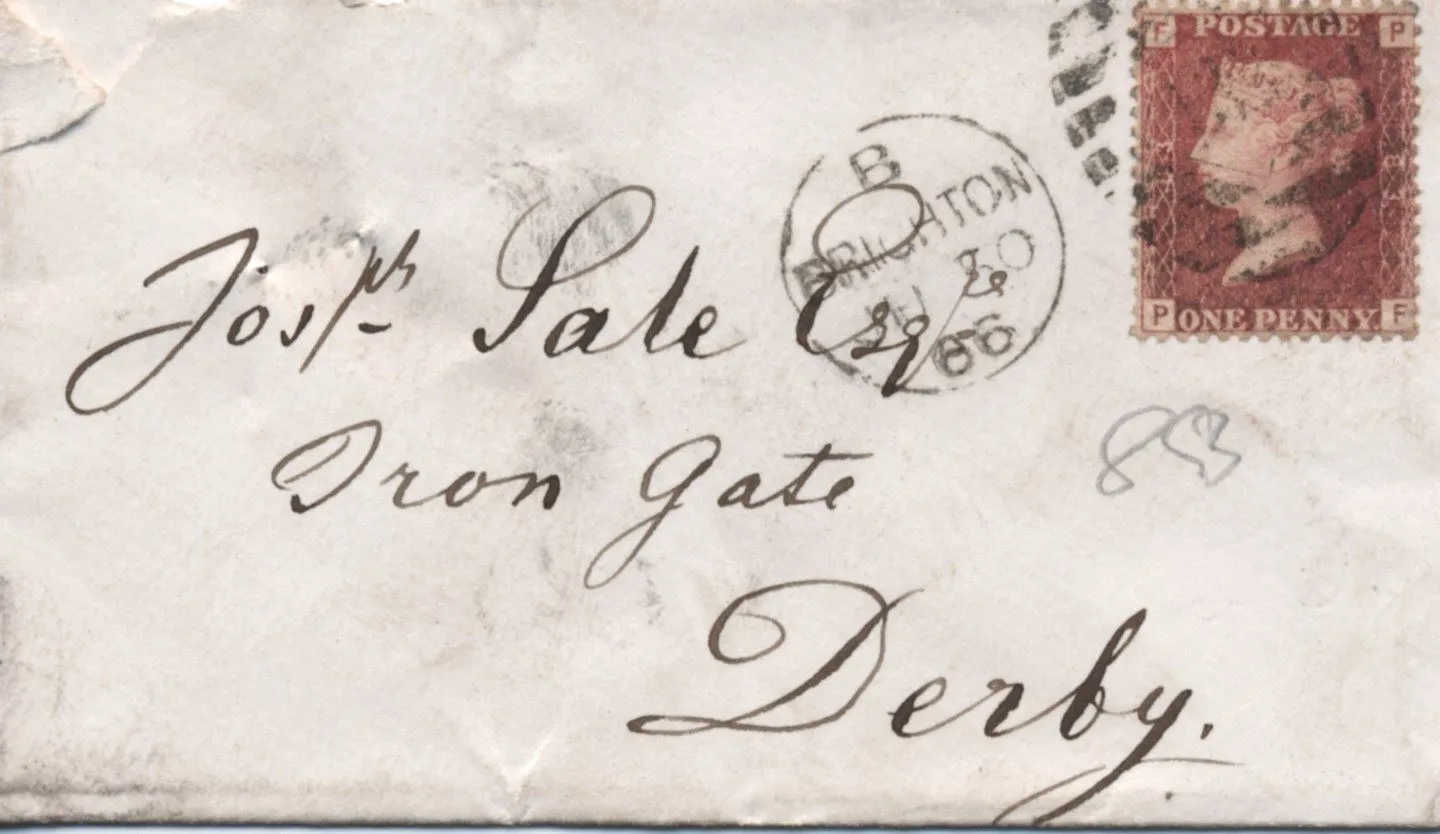 F POSTAGE P
P ONE PENNY. F
B
BRIGHTON
30
66
Josph Sale Esqre
Iron Gate
Derby.
853